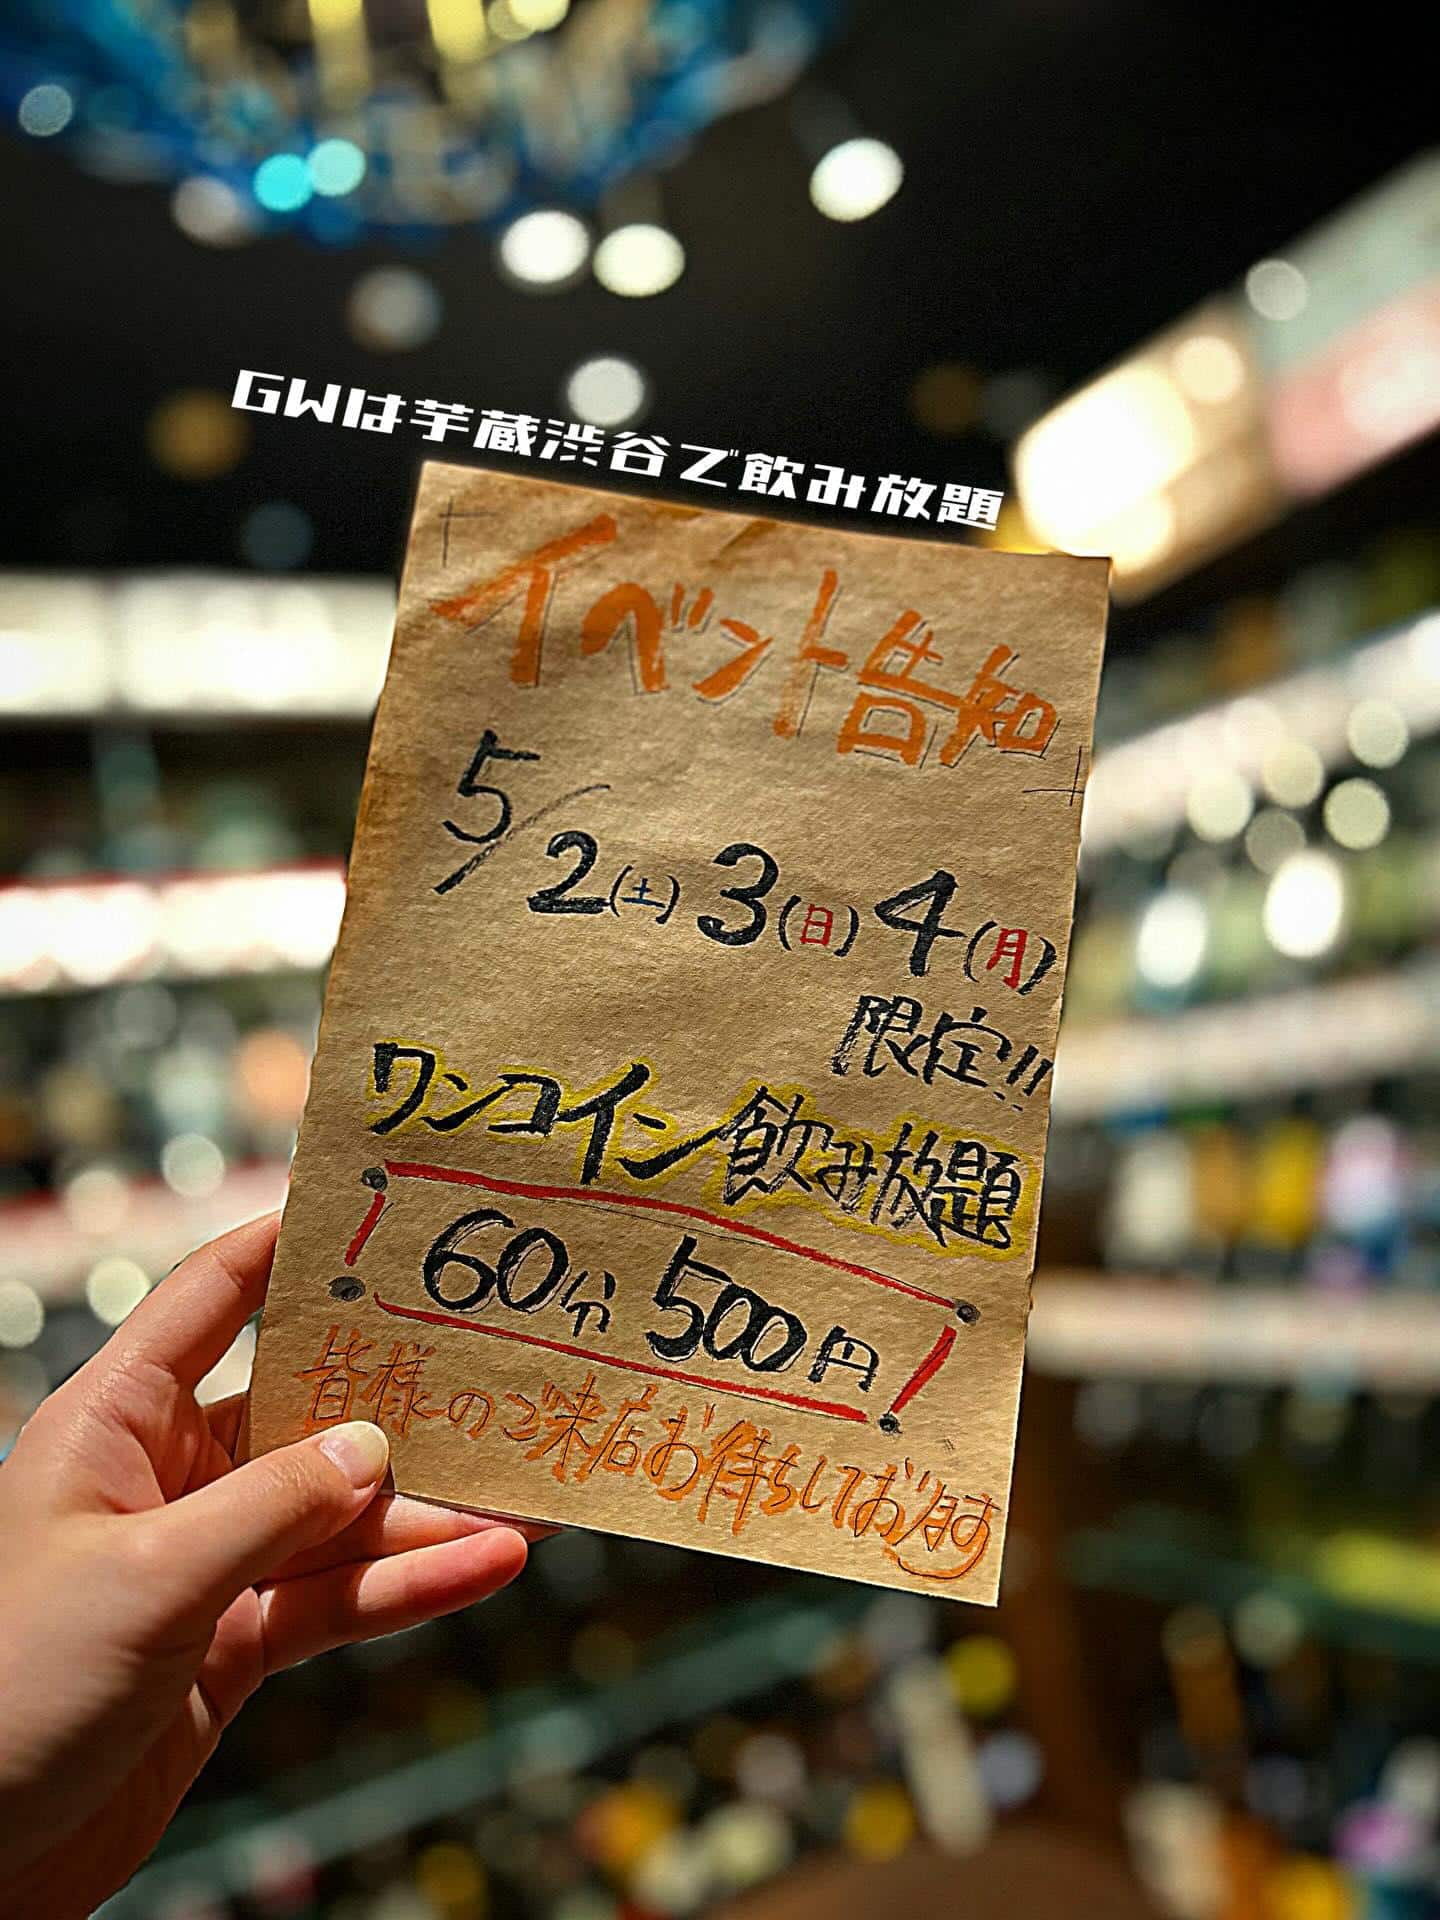 GWは芋蔵渋谷で飲み放題
イベント告知
5/2(土) 3(日) 4(月)
限定!!
ワンコイン飲み放題
60分 500円
皆様のご来店お待ちしております